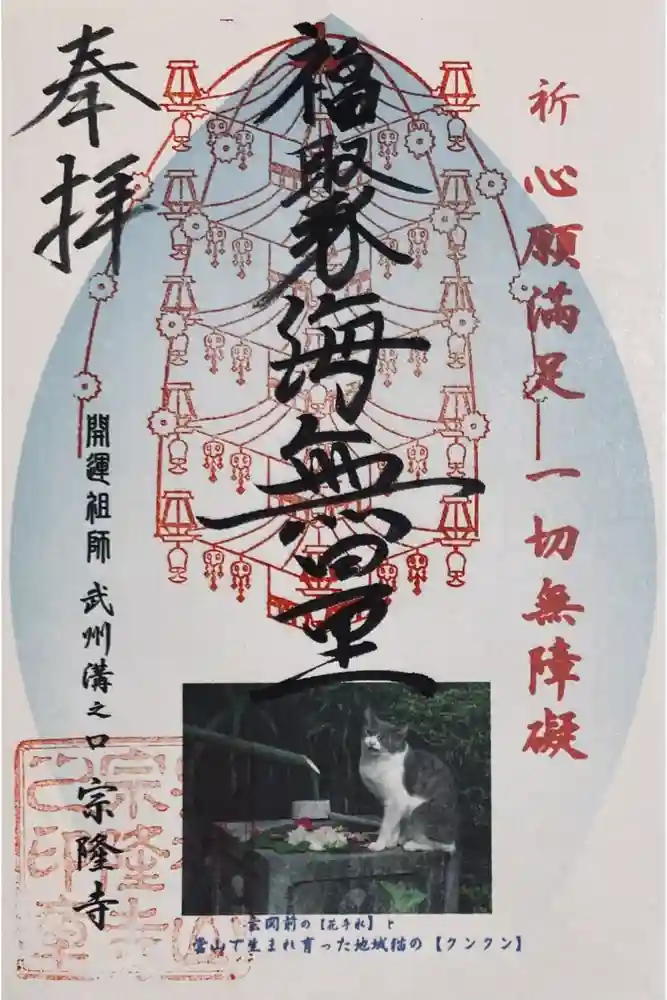 祈 心願満足 一切無障礙
福聚海無量
奉拝
開運祖師 武州溝之口 宗隆寺
玄関前の【花手水】と
当山で生まれ育った地域猫の【クンクン】